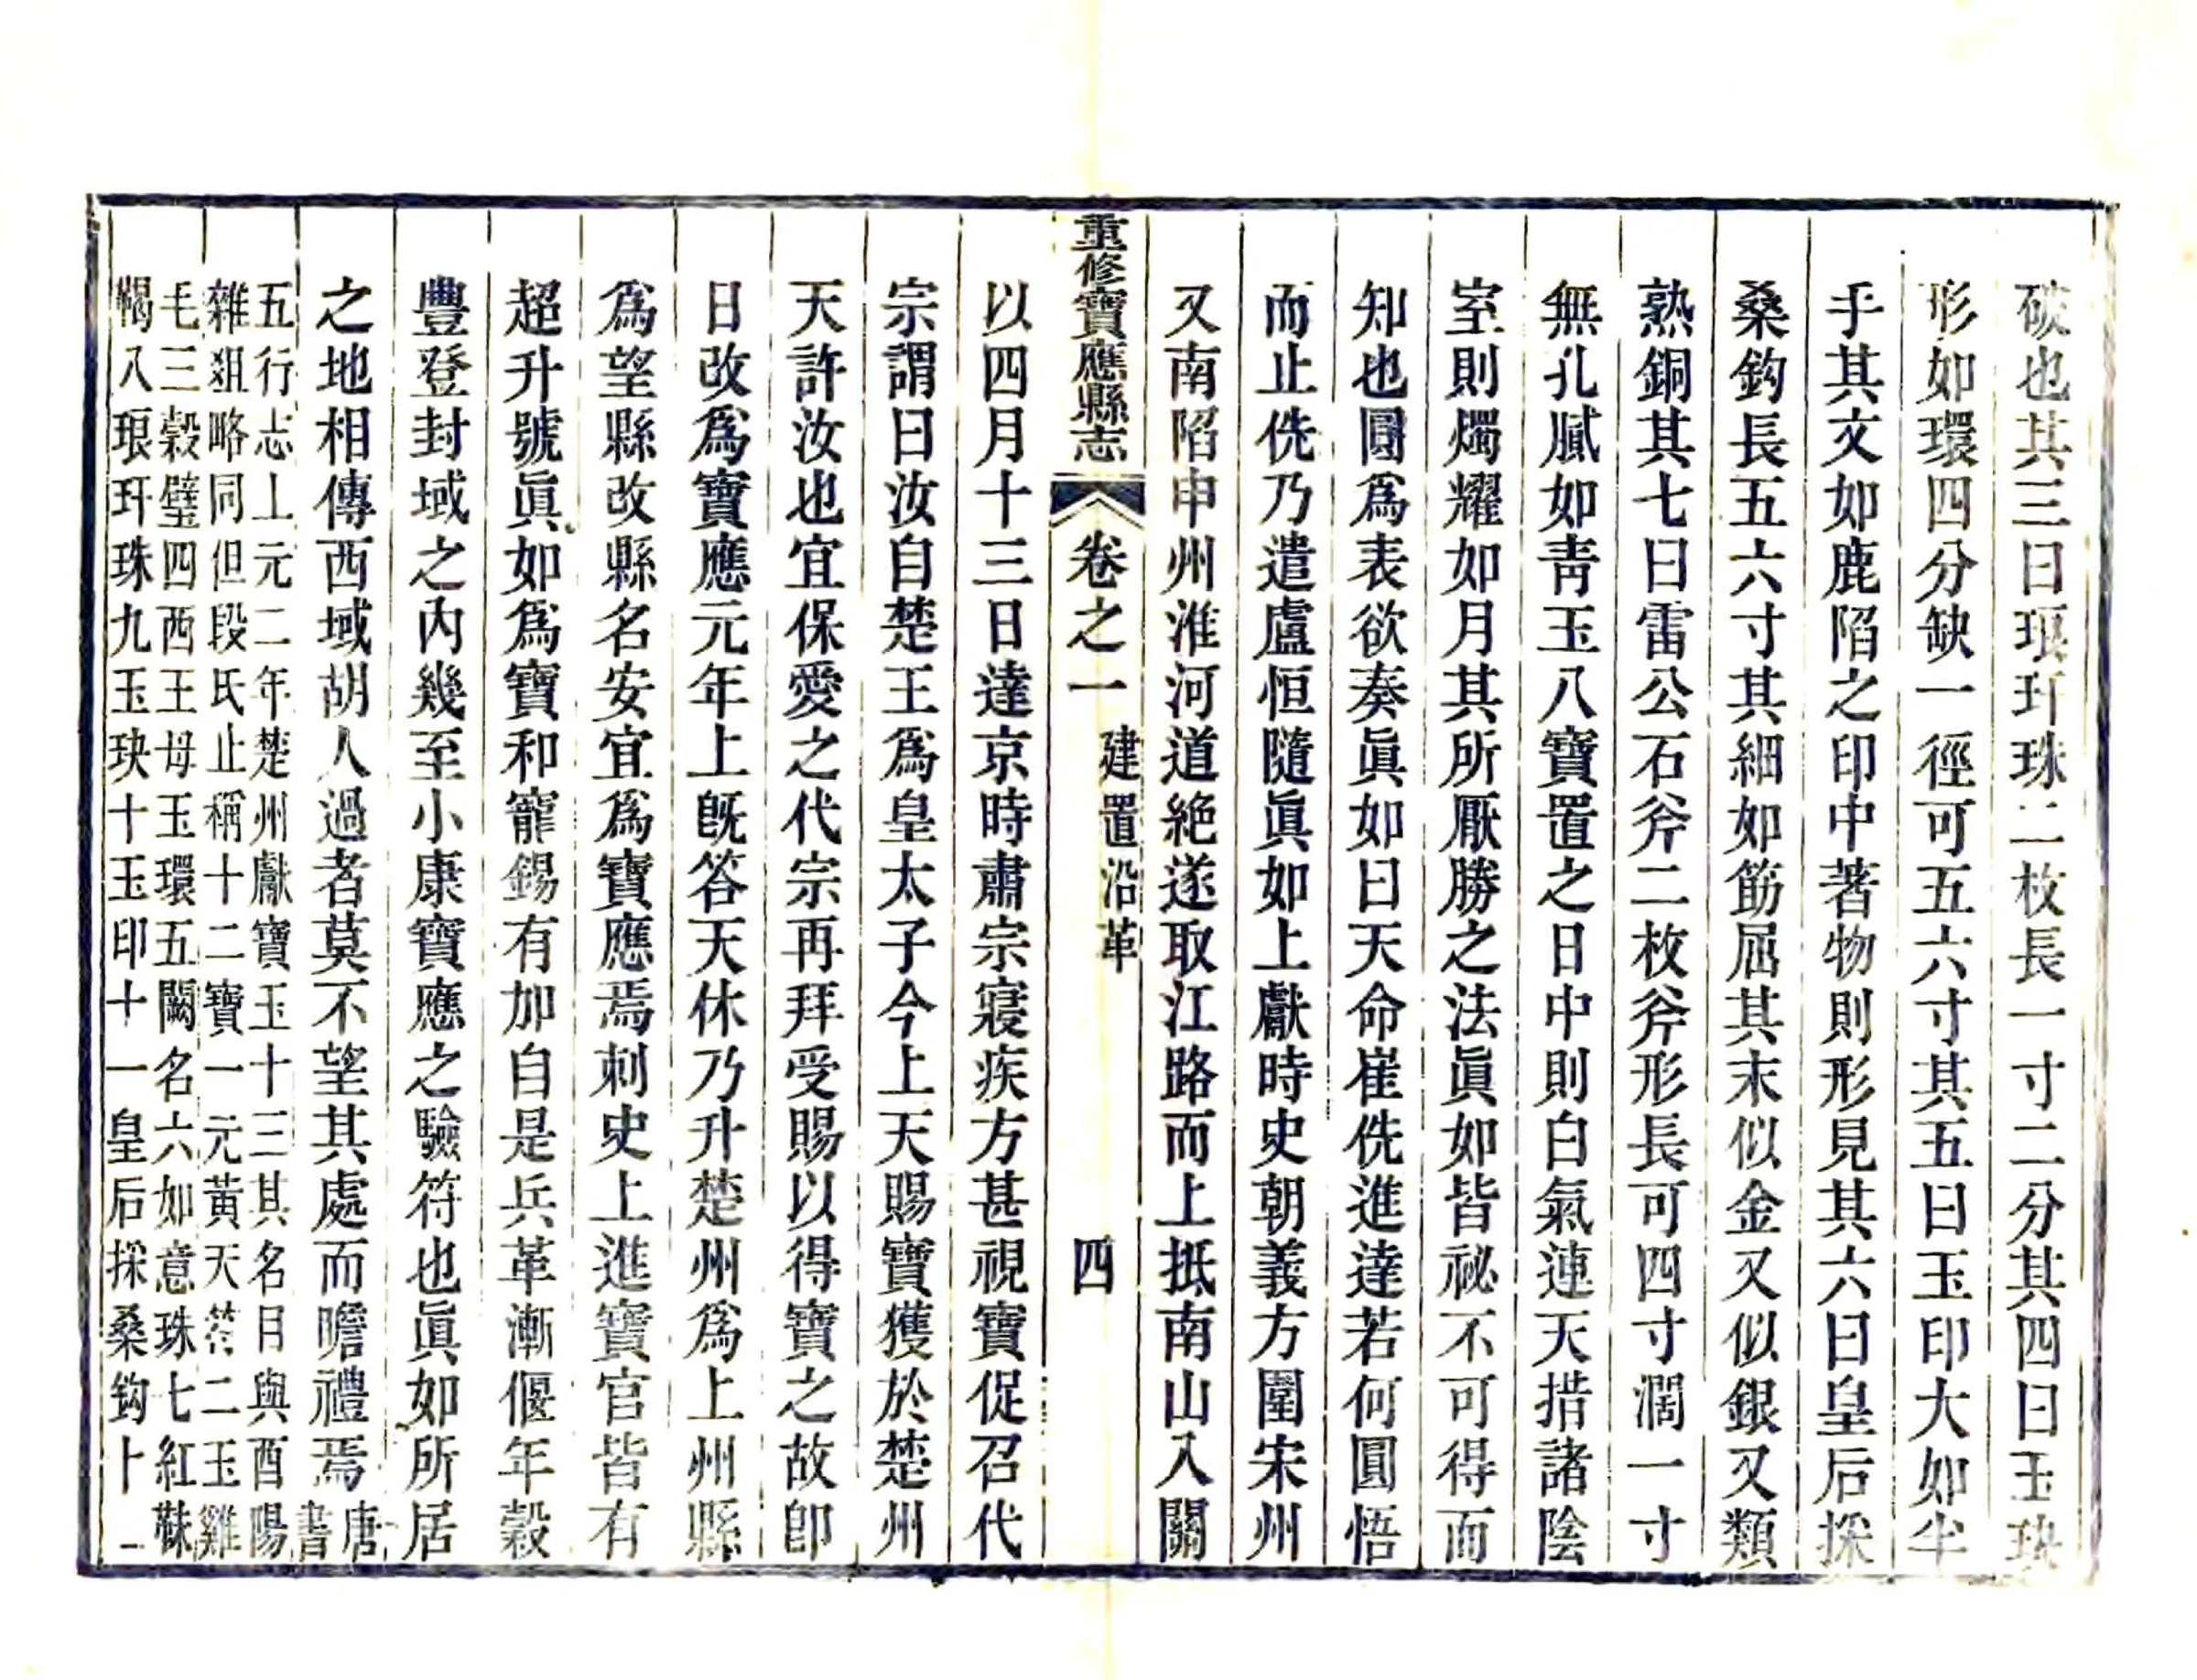 破也其三曰琅玕珠二枚長一寸二分其四曰玉玦
形如環四分缺一徑可五六寸其五曰玉印大如半
手其文如鹿陷之印中著物則形見其六曰皇后採
桑鈎長五六寸其細如筯屈其末似金又似銀又類
熟銅其七曰雷公石斧二枚斧形長可四寸濶一寸
無孔膩如青玉八寶置之日中則白氣連天措諸陰
室則燭耀如月其所厭勝之法眞如皆祕不可得而
知也圓爲表欲奏眞如曰天命崔侁進達若何圓悟
而止侁乃遣盧恒隨眞如上獻時史朝義方圍宋州
又南陷申州淮河道絶遂取江路而上抵南山入關
重修寶應縣志 卷之一 建置沿革 四
以四月十三日達京時肅宗寢疾方甚視寶促召代
宗謂曰汝自楚王爲皇太子今上天賜寶獲於楚州
天許汝也宜保愛之代宗再拜受賜以得寶之故卽
日改爲寶應元年上旣答天休乃升楚州爲上州縣
爲望縣改縣名安宜爲寶應焉刺史上進寶官皆有
超升號眞如爲寶和寵錫有加自是兵革漸偃年穀
豐登封域之內幾至小康寶應之驗符也眞如所居
之地相傳西域胡人過者莫不望其處而瞻禮焉 唐書
五行志上元二年楚州獻寶玉十三其名目與酉陽
雜俎略同但段氏止稱十二寶一元黃天符二玉雞
毛三穀璧四西王母玉環五闕名六如意珠七紅靺
鞨八琅玕珠九玉玦十玉印十一皇后採桑鈎十一